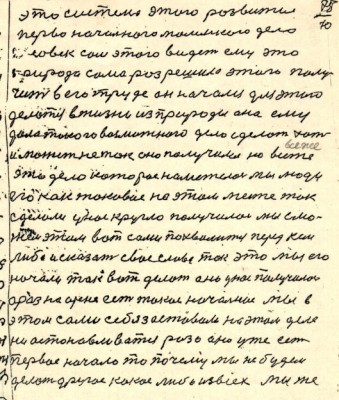 это система этого развития
перво начального маленького дело
человек сам этого видет ему это
природа сама розрешила этого полу
чить в его труде он начали для этого
делоть в жизни из природы она ему
дала такого возможного дело сделоть хоть
и может не ток оно получился но
все же
это дело которое наметили мы люди
его как токовое на этом месте так
сделали у нас кругло получилося мы смо
жем этим вот сами похвалится перед кем
либо и сказать свое слово так это мы его
начали так вот делоть оно у нас получилося
а раз на арене есть такое начало мы в
этом сами себя заставим на этом деле
ни астонавливатся раз оно уже есть
первое начало то почему мы не будем
делоть другое какое либо извsек мы же